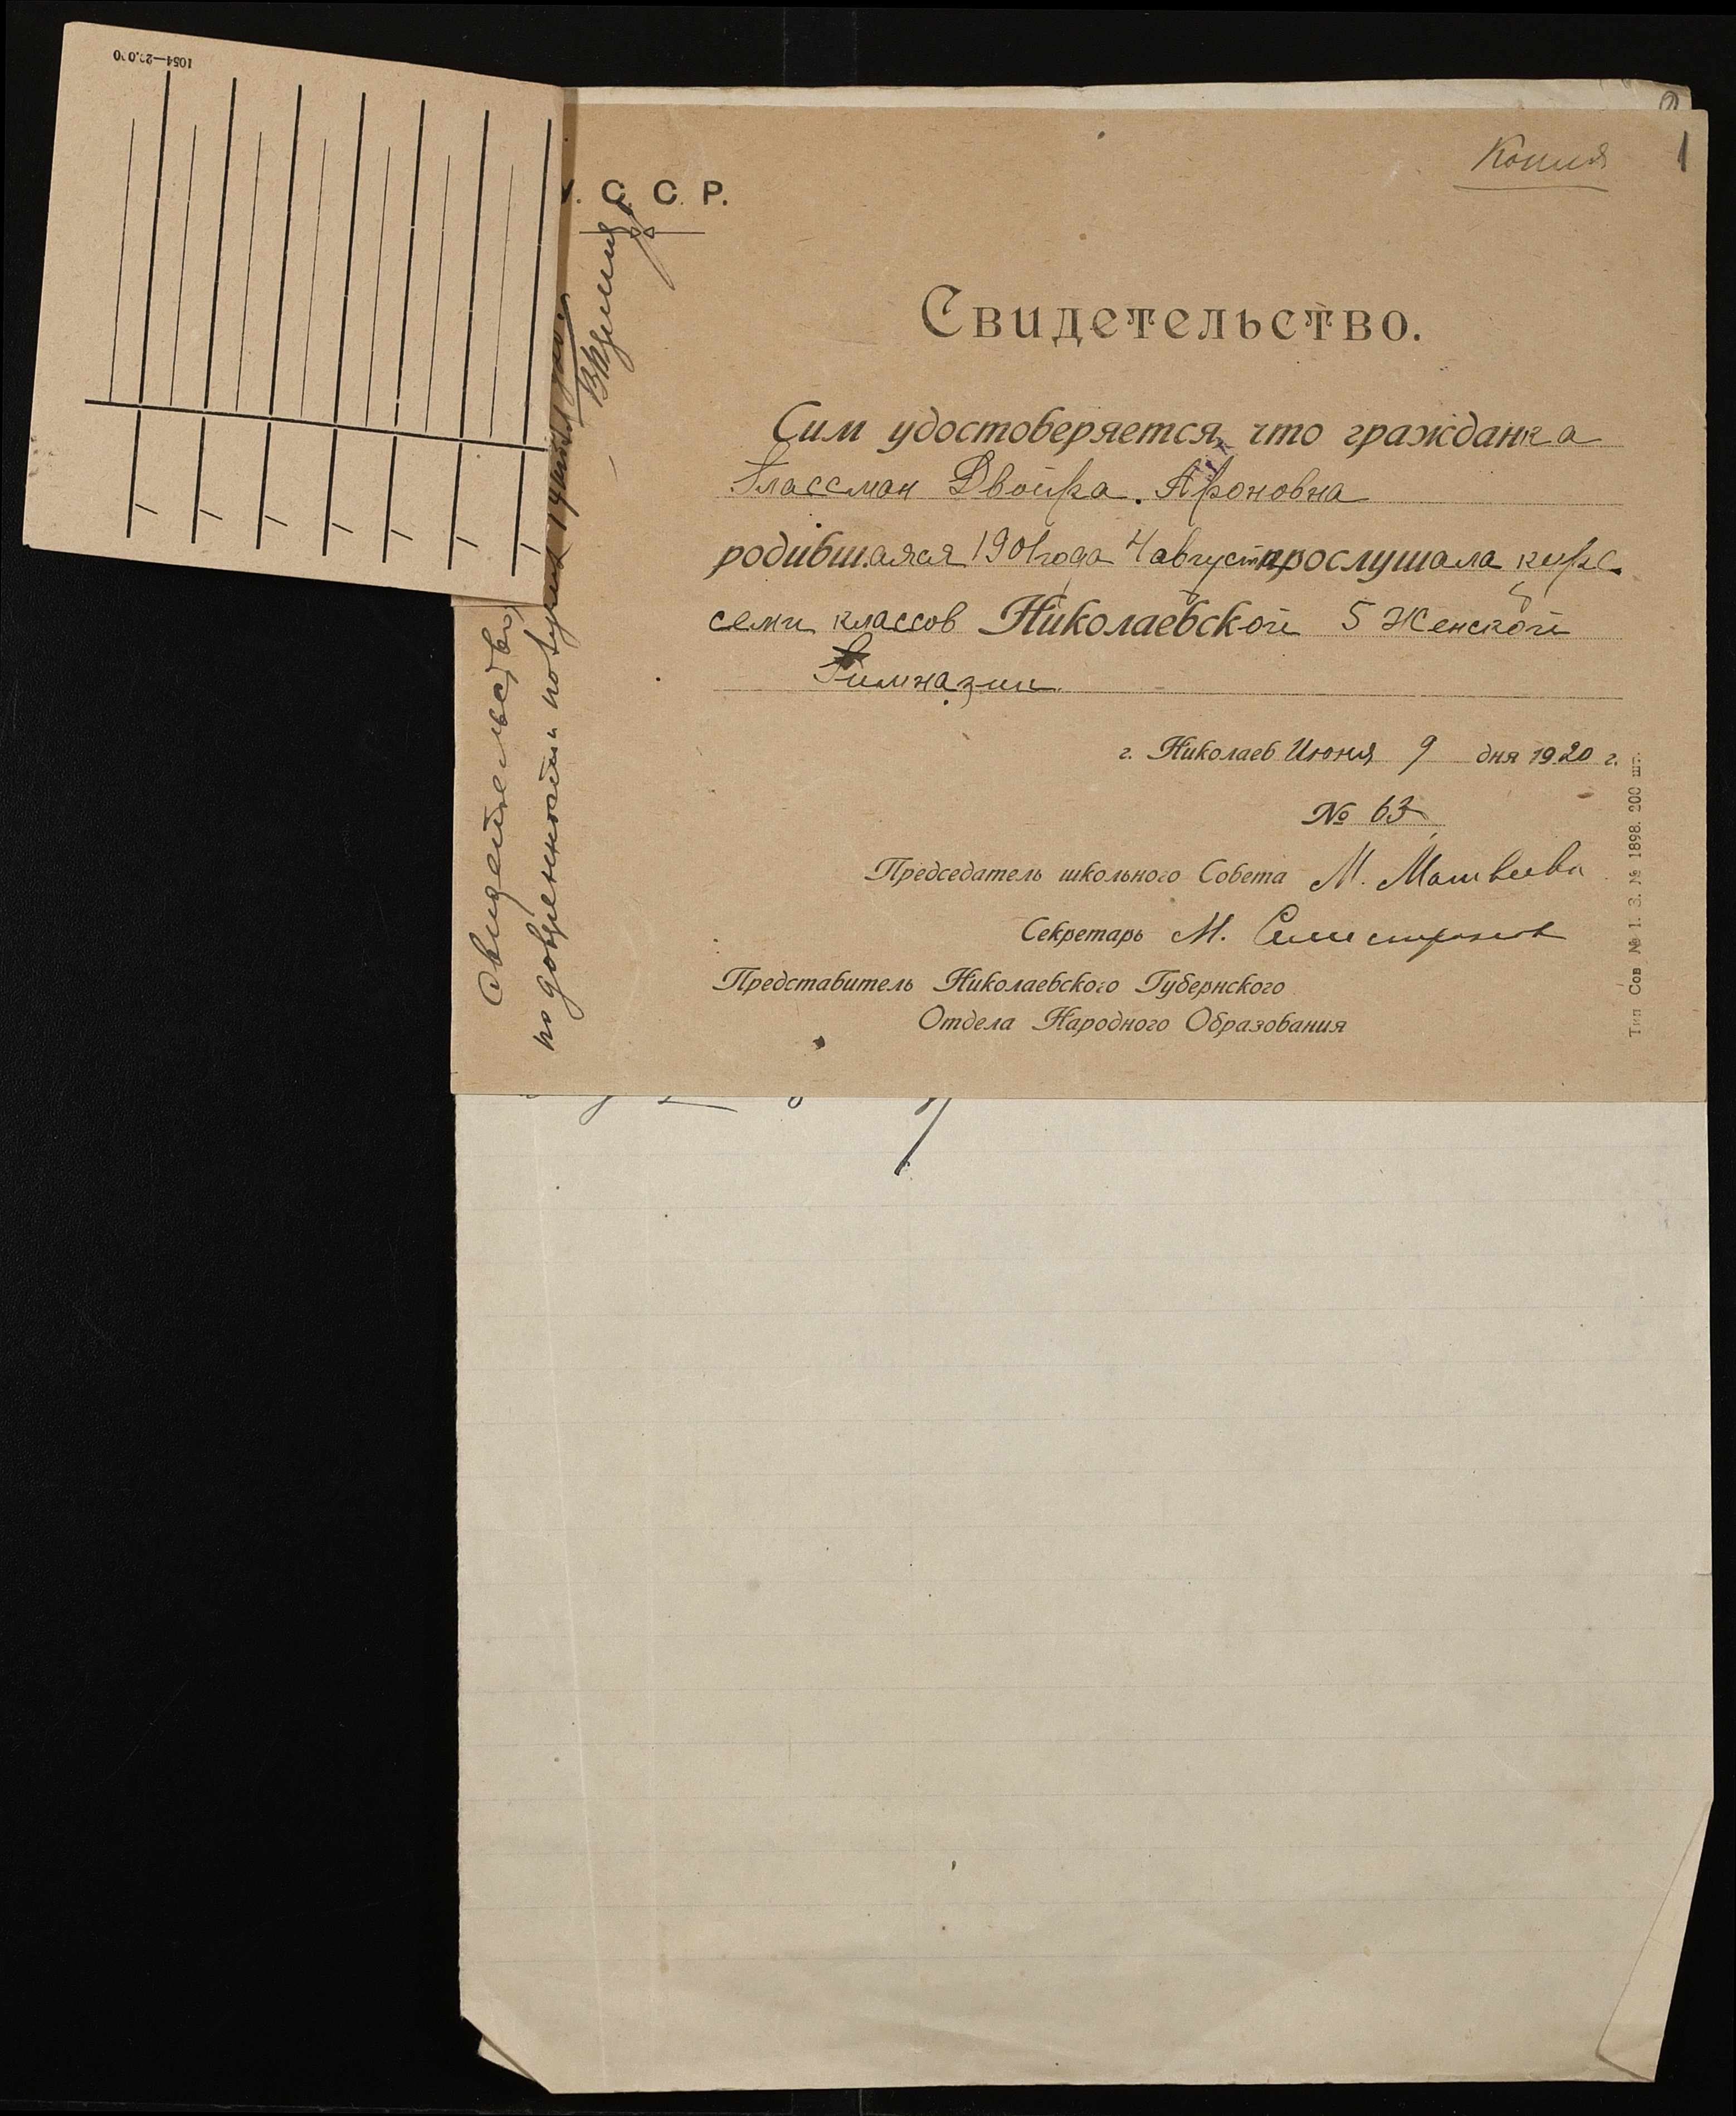 1054—20.000
Копия
1
У. С. С. Р.
Свидетельство.
Сим удостоверяется, что гражданка
Глассман Двойра Ароновна
родившаяся 1901 года 4 август прослушала курс
семи классов Николаевской 5 Женской
Гимназии
г. Николаев Июня 9 дня 1920 г.
№ 63
Председатель школьного Совета М. Матвеева
Секретарь М.
Представитель Николаевского Губернского
Отдела Народного Образования
Тип Сов № 1. З. № 1898. 200 шт.
Свидетельство
по получил